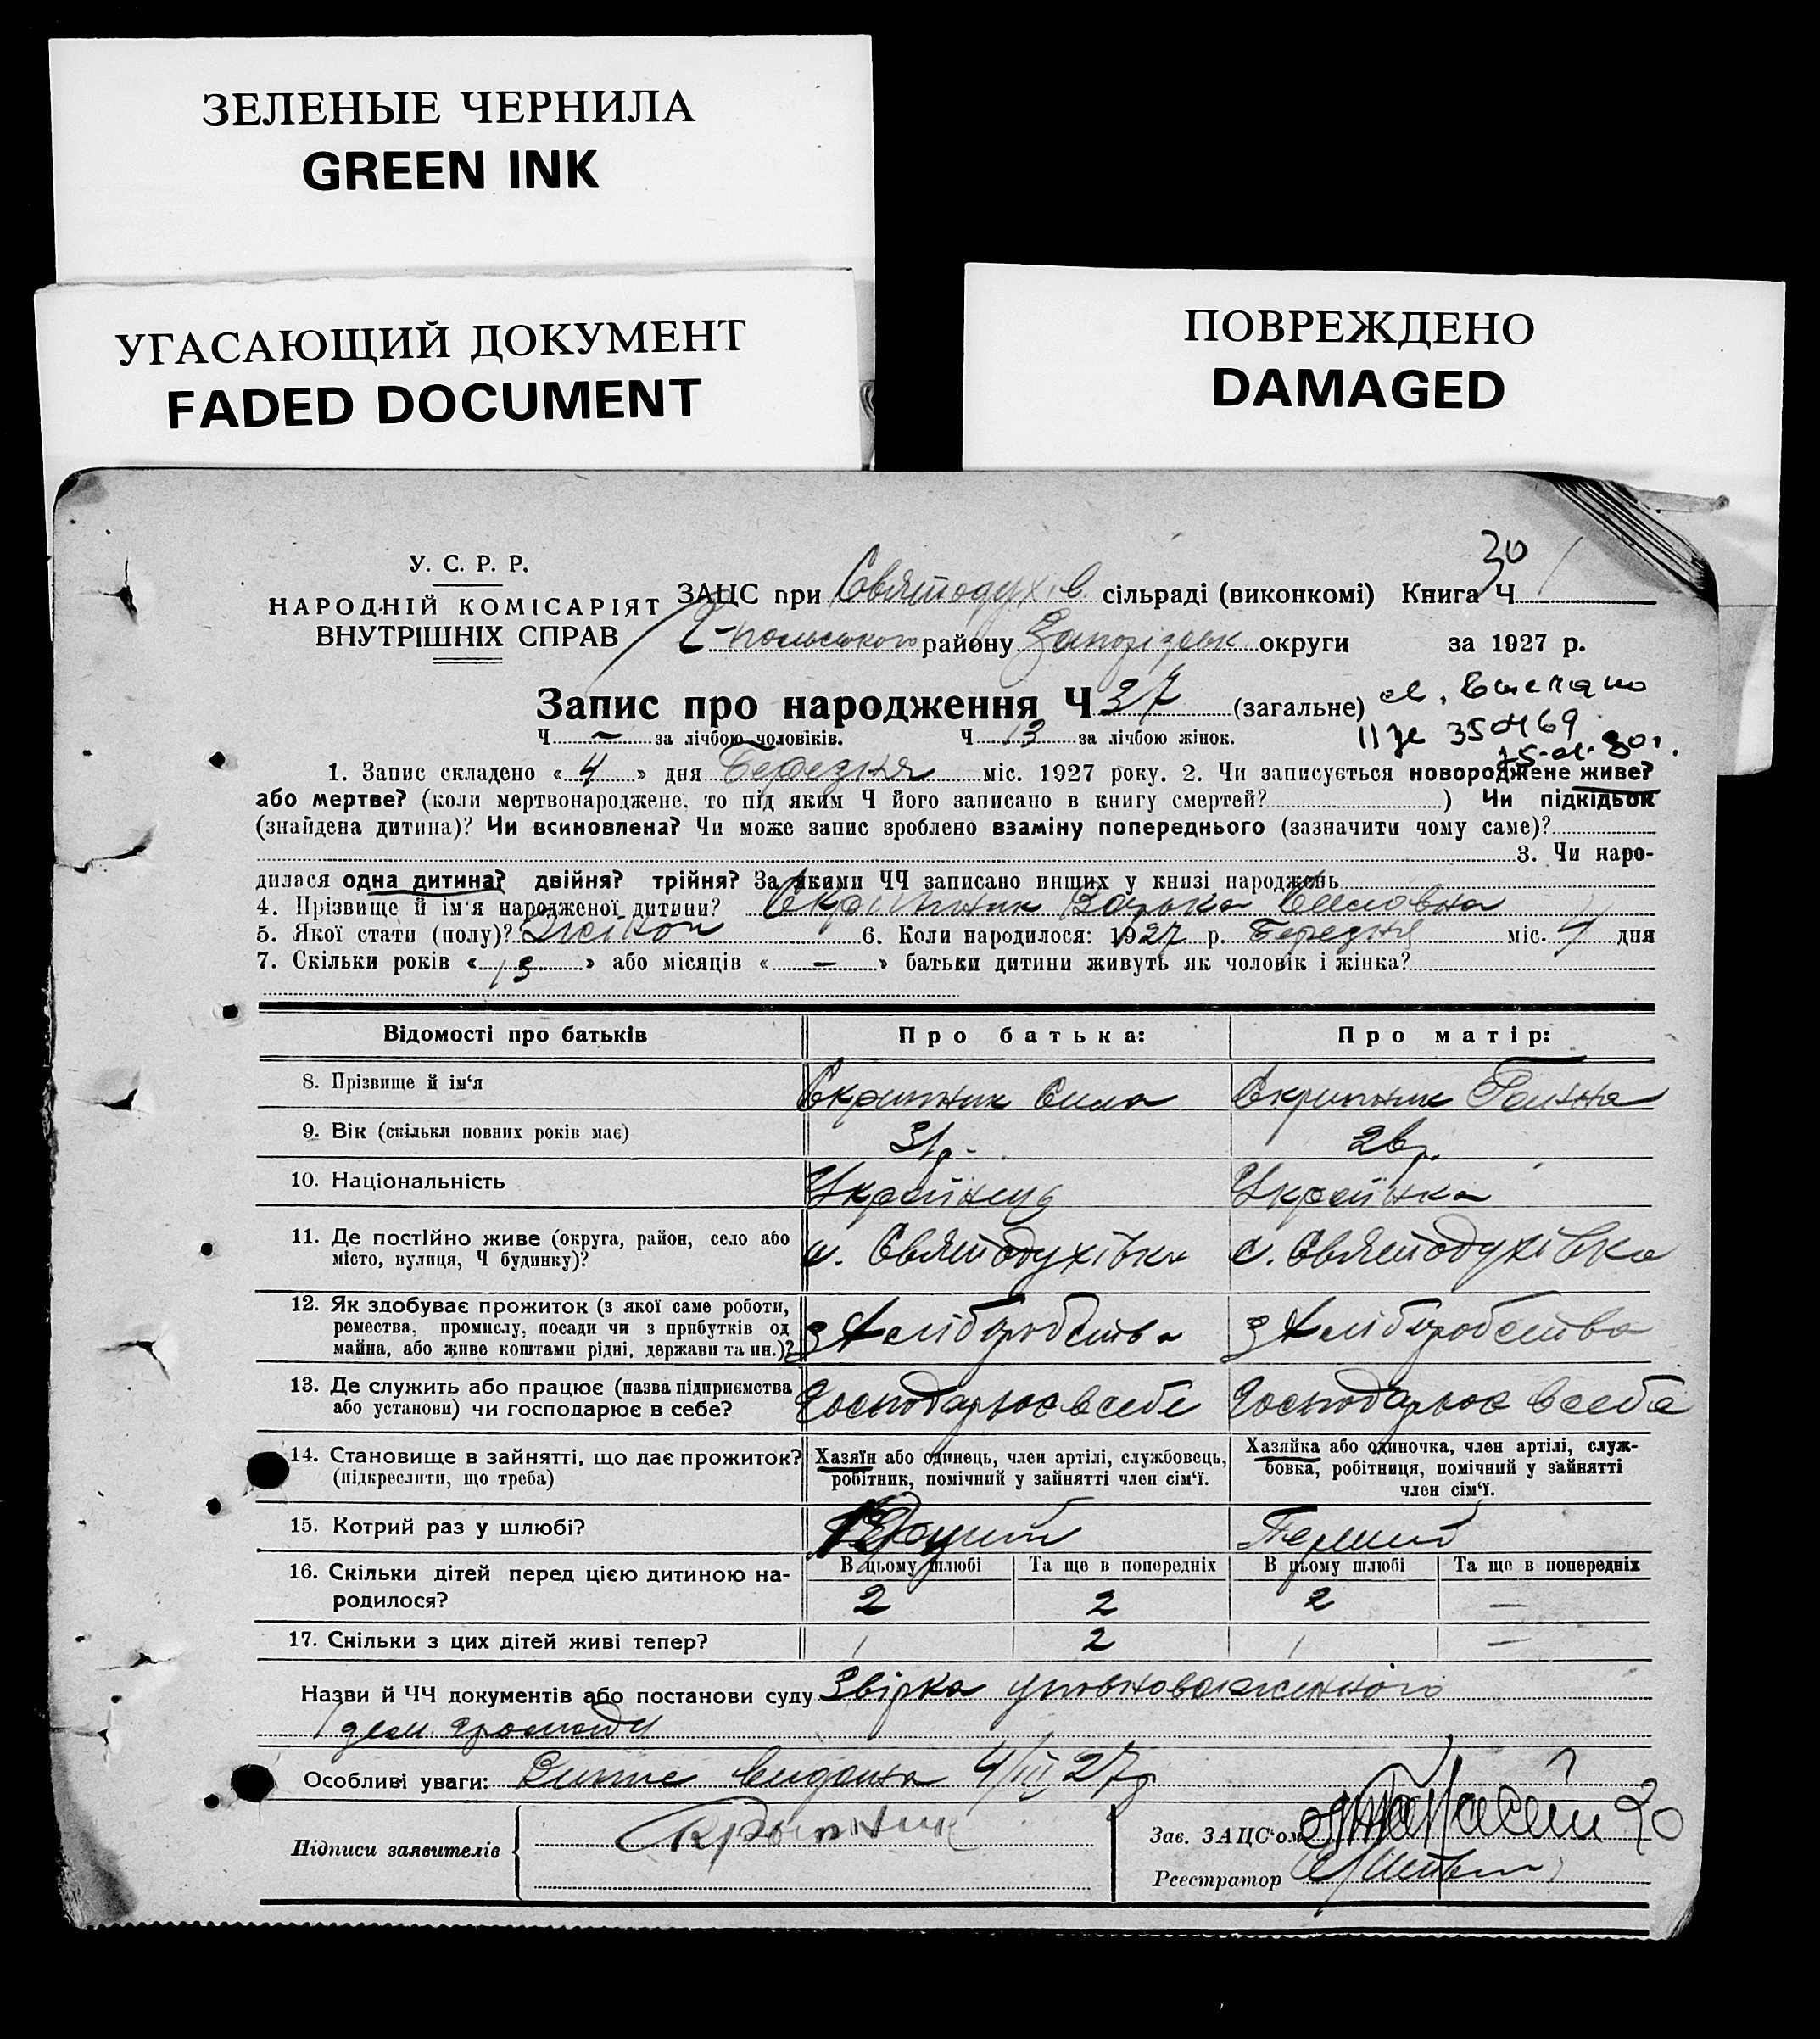 ЗЕЛЕНЫЕ ЧЕРНИЛА
GREEN INK
УГАСАЮЩИЙ ДОКУМЕНТ
FADED DOCUMENT
ПОВРЕЖДЕНО
DAMAGED
30
У. С. Р. Р.
НАРОДНІЙ КОМІСАРІЯТ
ВНУТРІШНІХ СПРАВ
ЗАЦС при Святодухів сільраді (виконкомі) Книга Ч
району Запорізьк округи за 1927 р.
Запис про народження Ч 37 (загальне)
Ч — за лічбою чоловіків. Ч 13 за лічбою жінок.
1. Запис складено « 4 » дня Березня міс. 1927 року. 2. Чи записується новороджене живе?
або мертве? (коли мертвонароджене, то під яким Ч його записано в книгу смертей? ) Чи підкідьок
(знайдена дитина)? Чи всиновлена? Чи може запис зроблено взаміну попереднього (зазначити чому саме)?
3. Чи наро-
дилася одна дитина? двійня? трійня? За якими ЧЧ записано инших у книзі народжень
4. Прізвище й ім'я народженої дитини? Скрипник Силовна
5. Якої стати (полу)? Жіноч 6. Коли народилося: 1927 р. Березня міс. 4 дня
7. Скільки років « 13 » або місяців « — » батьки дитини живуть як чоловік і жінка?
Відомості про батьків Про батька: Про матір:
8. Прізвище й ім'я Скрипник Сила Скрипник Ганна
9. Вік (скільки повних років має) 31 р.
10. Національність Українець Українка
11. Де постійно живе (округа, район, село або
місто, вулиця, Ч будинку)? с. Святодухівка с. Святодухівка
12. Як здобуває прожиток (з якої саме роботи,
ремества, промислу, посади чи з прибутків од
майна, або живе коштами рідні, держави та ин.)? З хліборобства З хліборобства
13. Де служить або працює (назва підприємства
або установи) чи господарює в себе? Господарює в себе Господарює в себе
14. Становище в зайнятті, що дає прожиток?
(підкреслити, що треба)
Хазяїн або одинець, член артілі, службовець,
робітник, помічний у зайнятті член сім'ї.
Хазяйка або одиночка, член артілі, служ-
бовка, робітниця, помічний у зайнятті
член сім'ї.
15. Котрий раз у шлюбі? Другий Перший
16. Скільки дітей перед цією дитиною на-
родилося?
В цьому шлюбі Та ще в попередніх В цьому шлюбі Та ще в попередніх
2 2 2 —
17. Скільки з цих дітей живі тепер? 1 2 1 —
Назви й ЧЧ документів або постанови суду Звірка уповноваженного
зем громади
Особливі уваги: Випис видана 4/III 27 р
Підписи заявителів
Зав. ЗАЦС'ом
Реєстратор